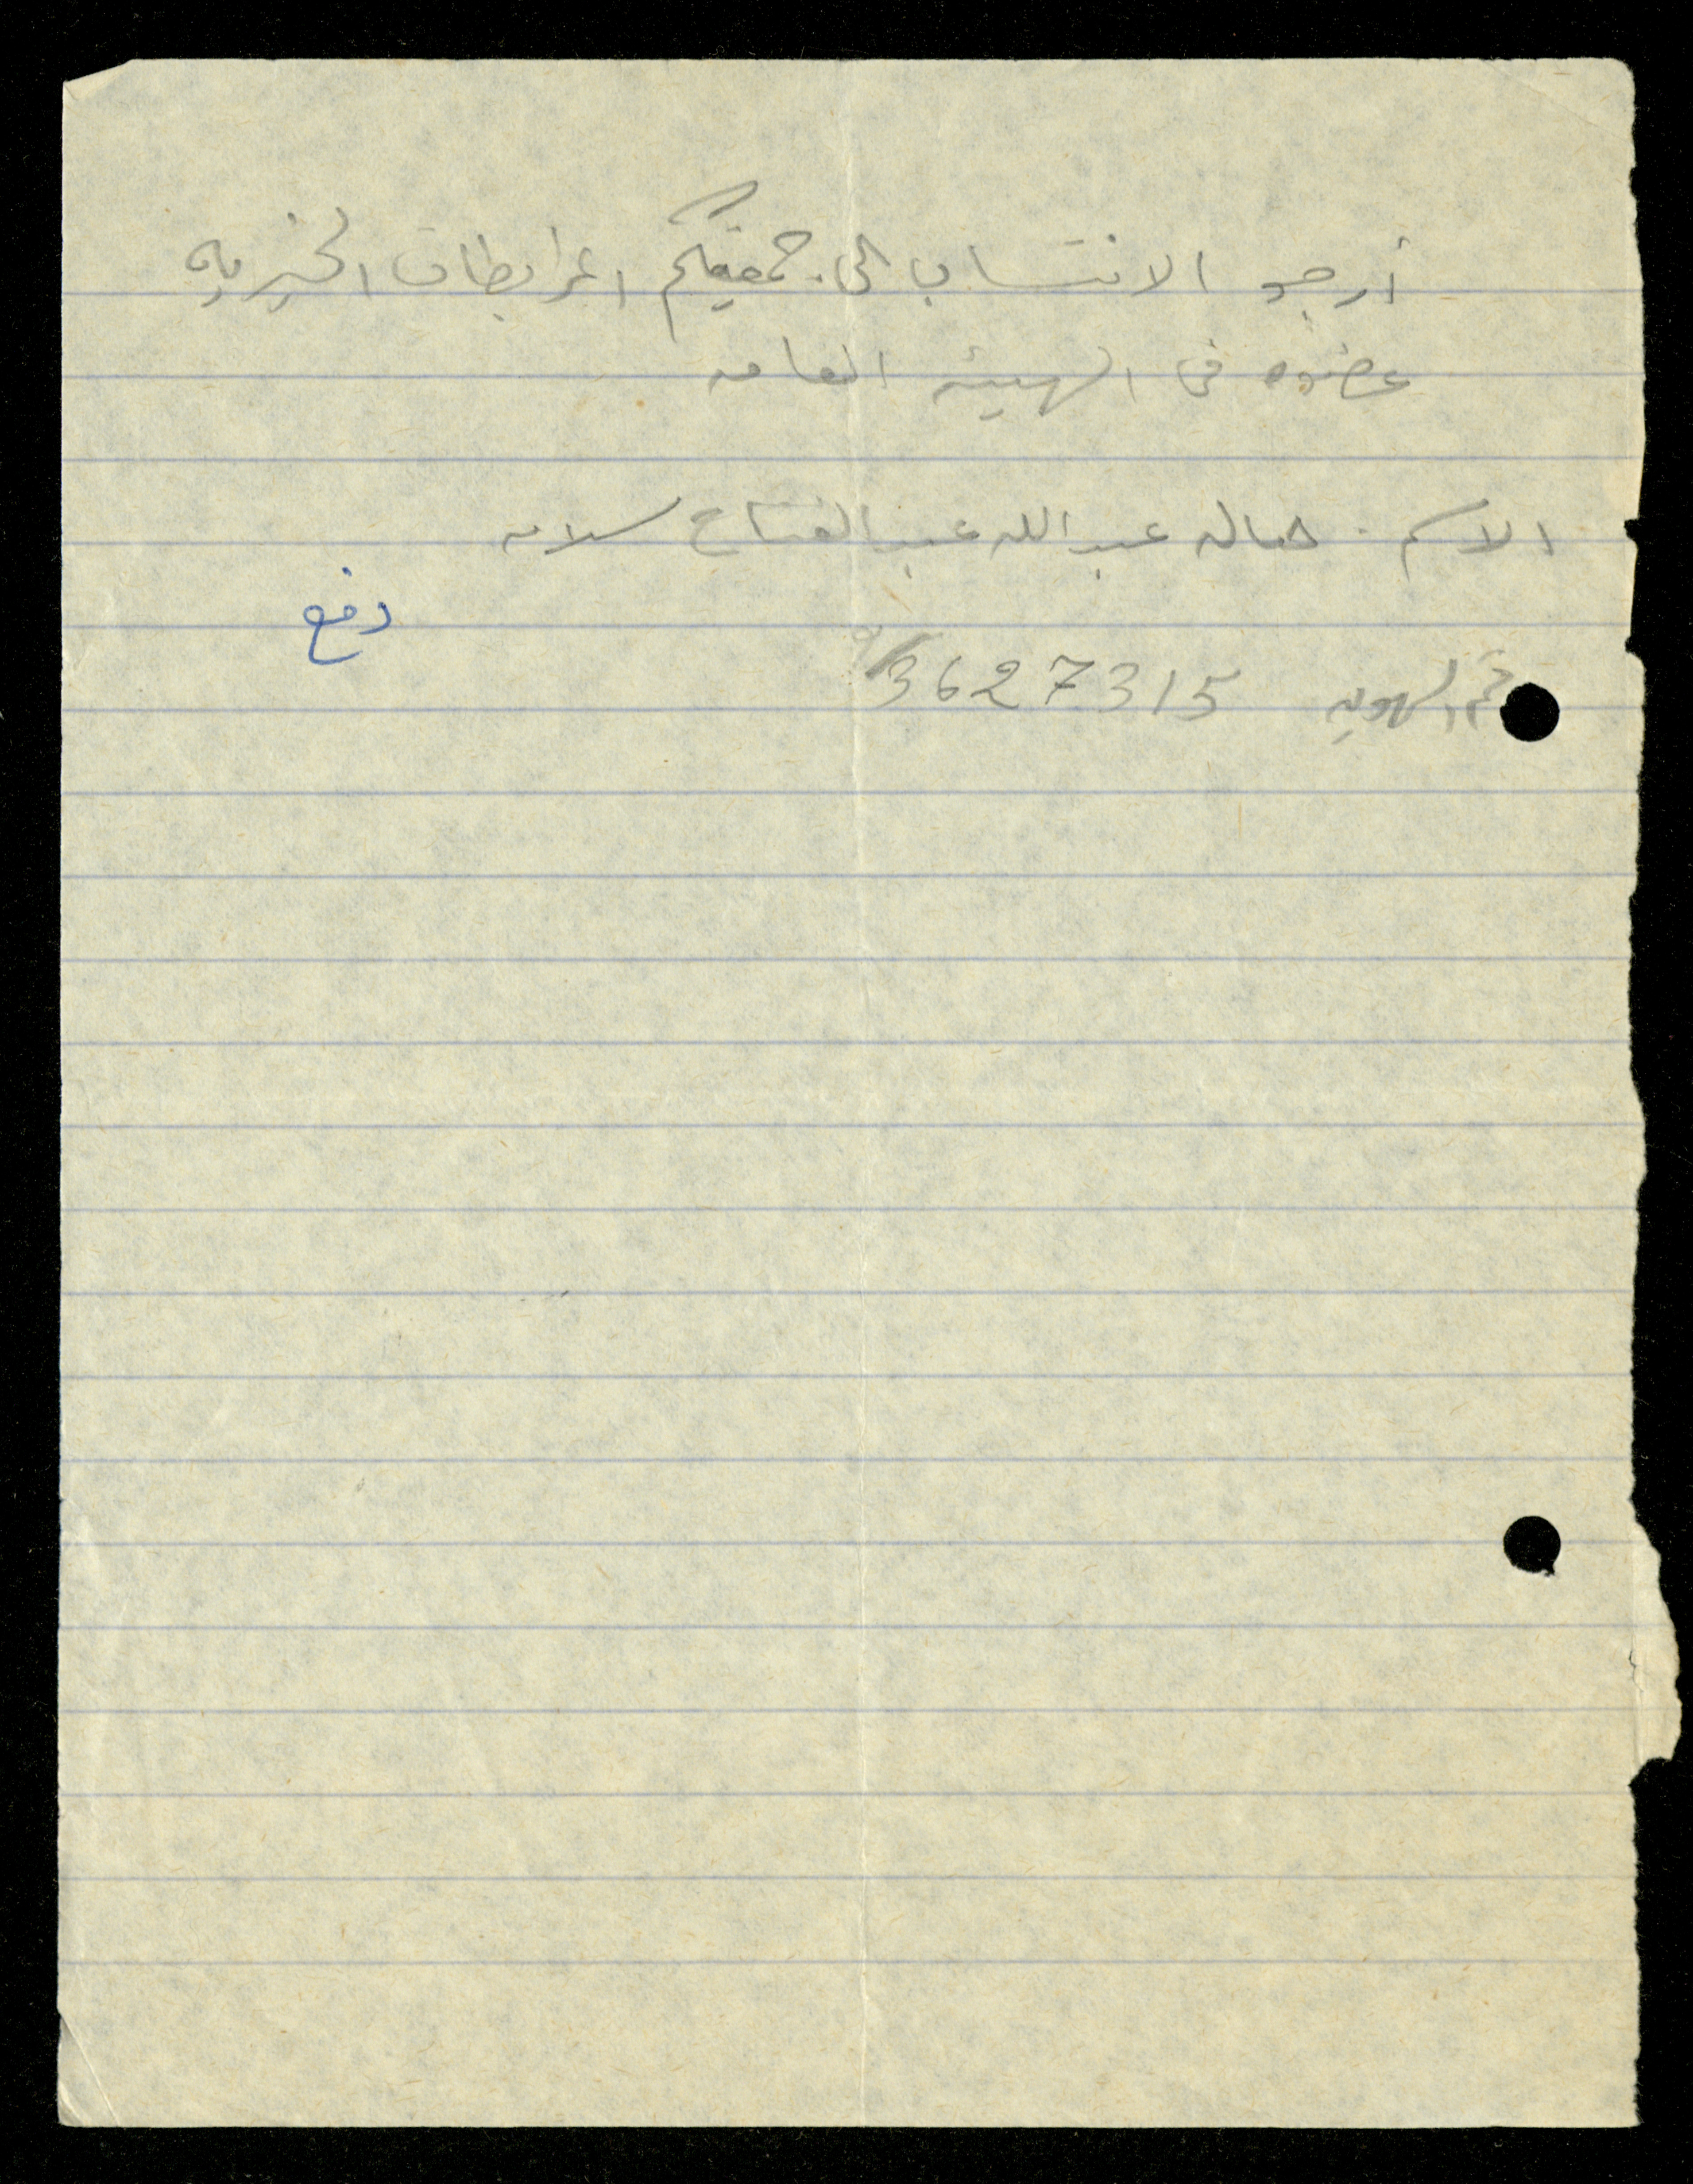 أرجو الانتساب الى جمعيتكم المرابطات الخيريه
عضوه في الهيئه العامه
الاسم . جماله عبد الله عبد الفتاح سلامه
دفع
رقم الهويه 3627315/